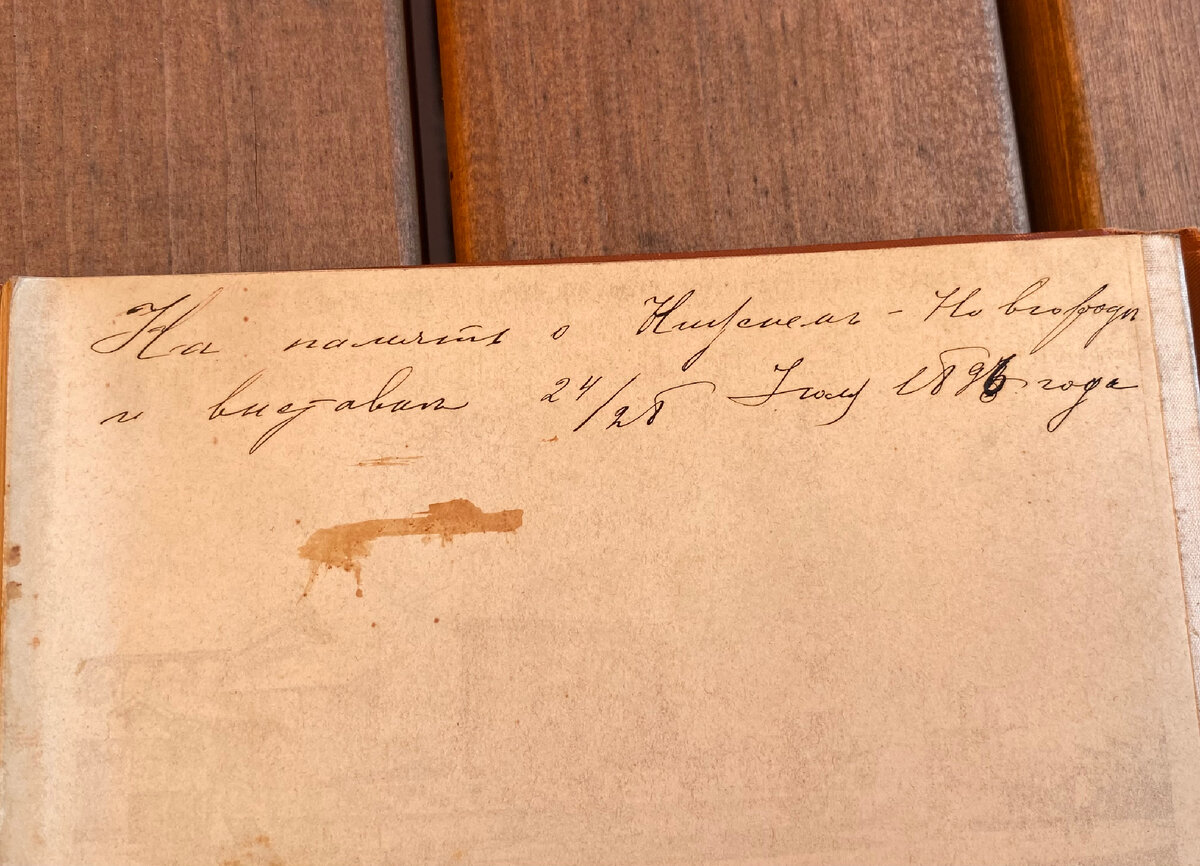 На память о Нижнемъ-Новгородѣ
и выставкѣ 24/28 Іюля 1896 года